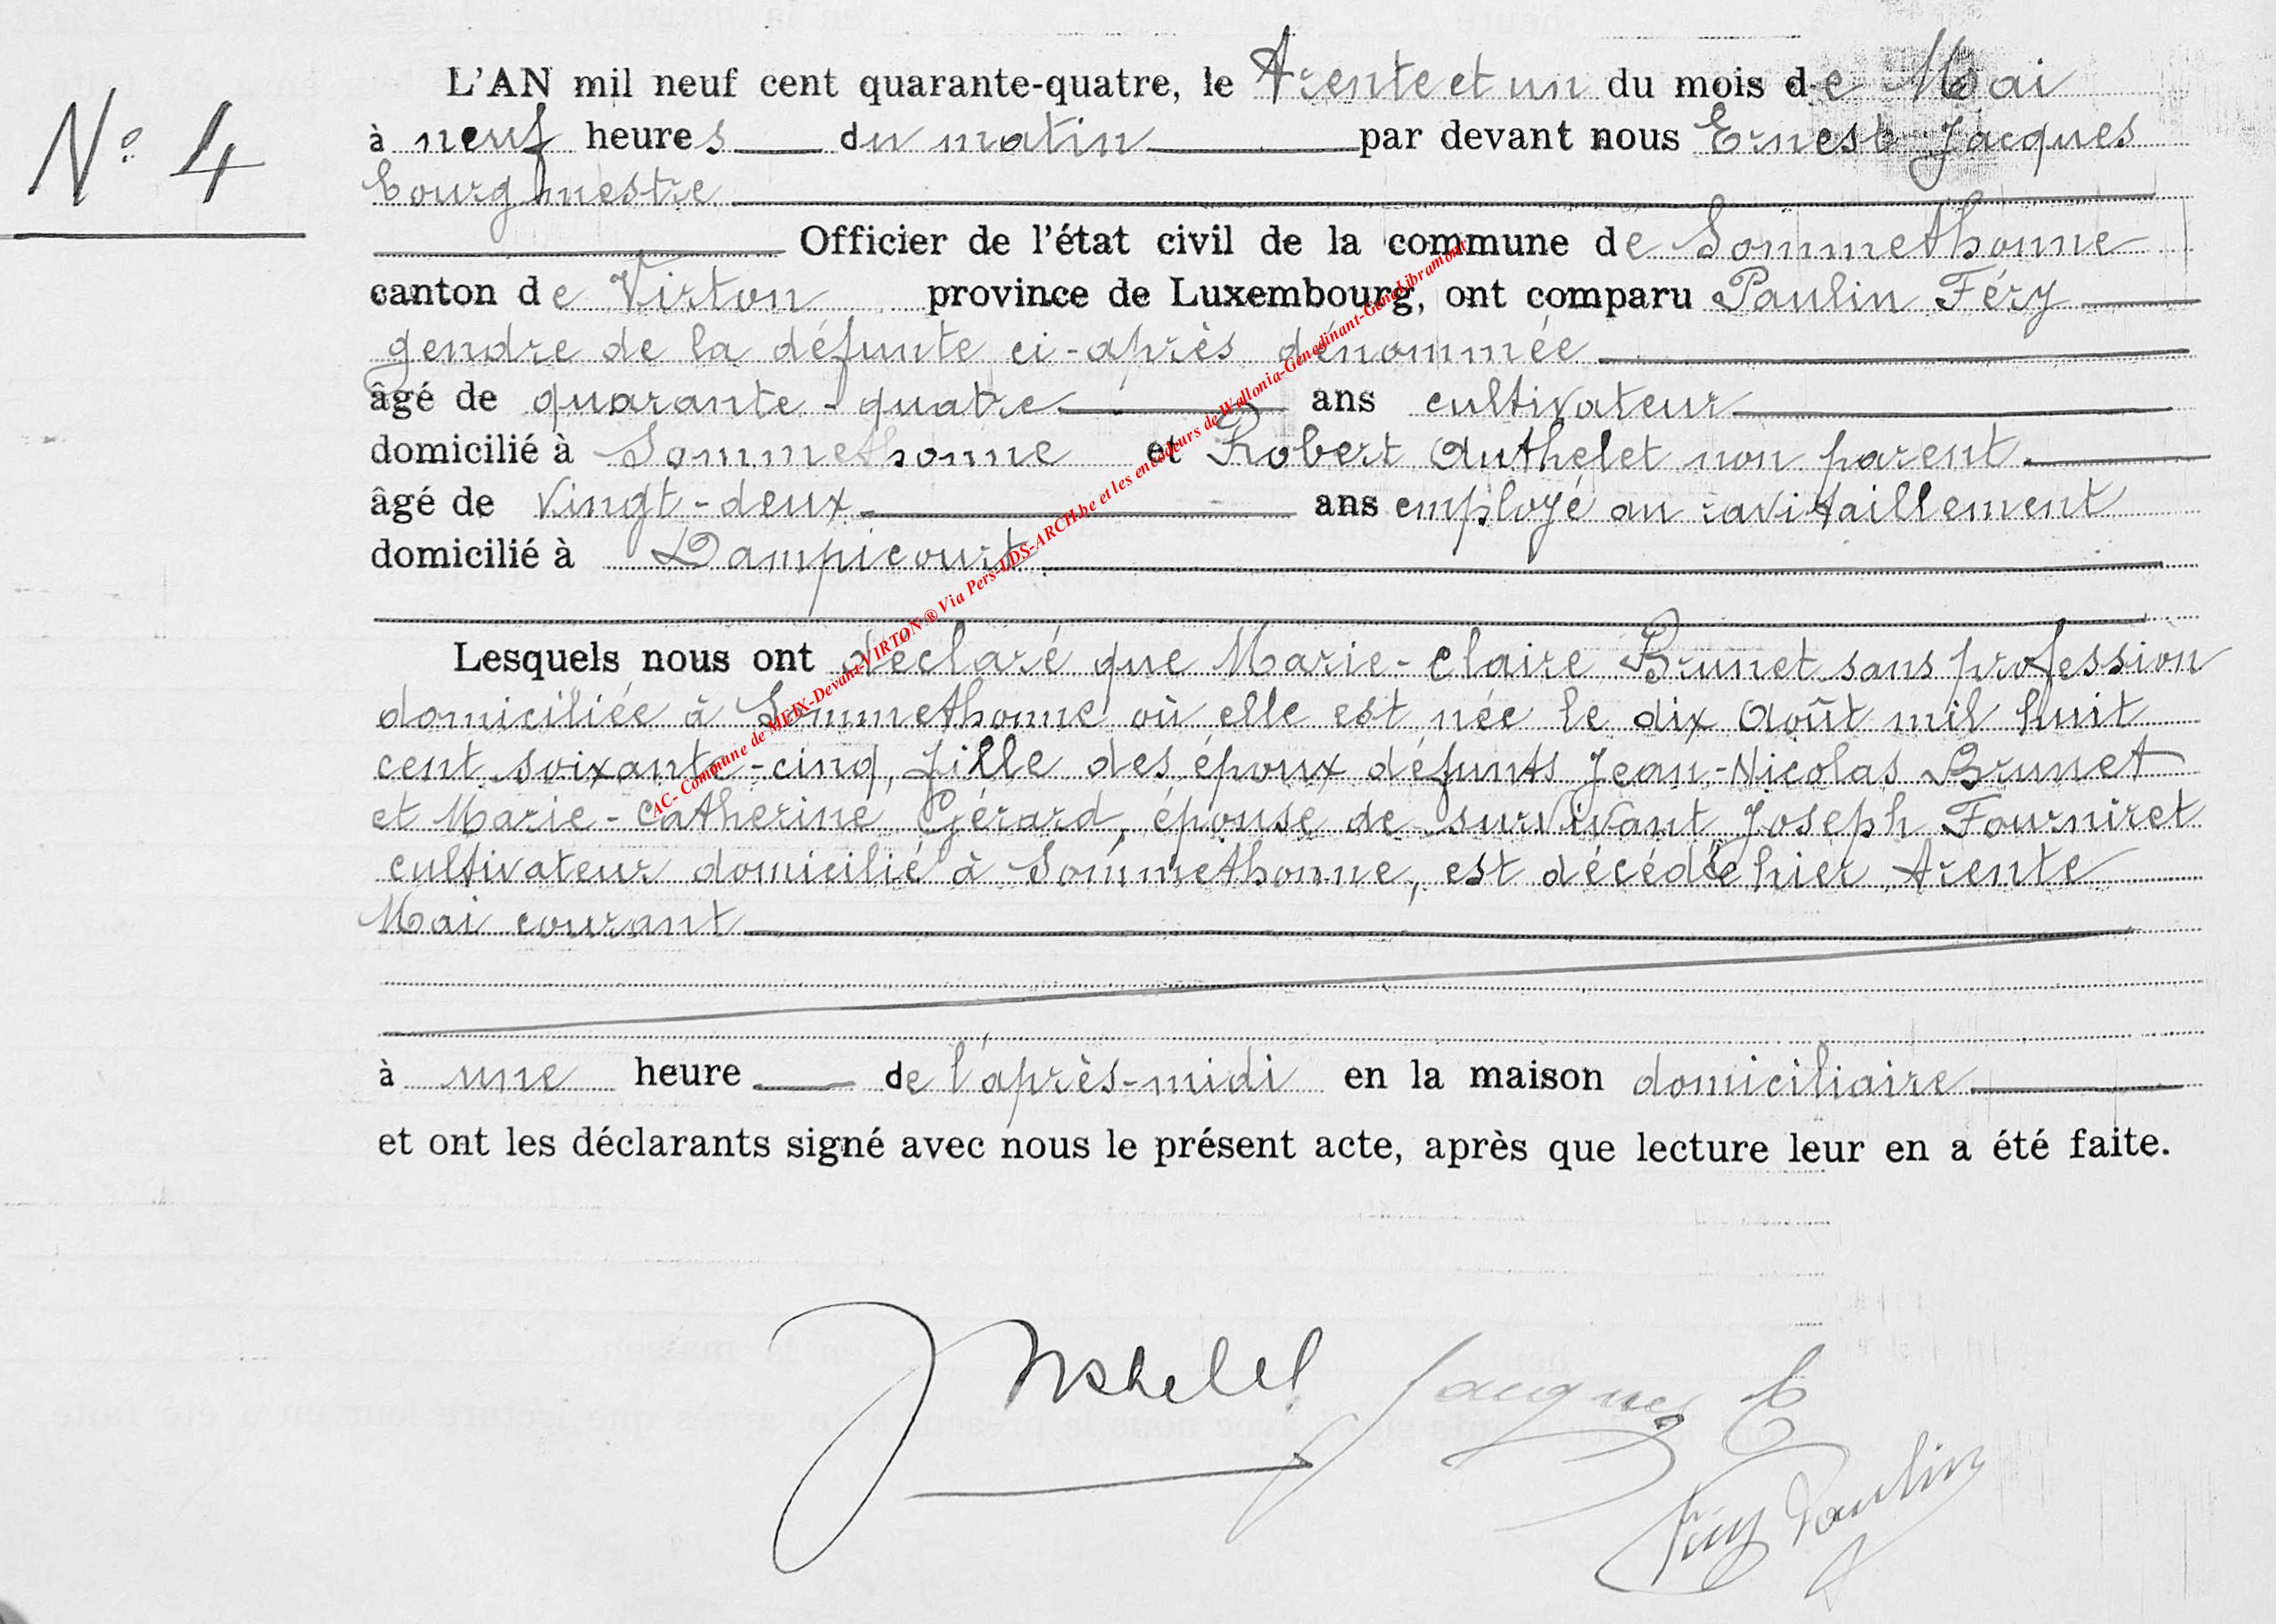 L'AN mil neuf cent quarante-quatre, le Trente et un du mois de Mai
N° 4
à neuf heures du matin par devant nous Ernest Jacques
bourgmestre
Officier de l'état civil de la commune de Sommethonne
canton de Virton province de Luxembourg, ont comparu Paulin Féry
gendre de la défunte ci-après dénommée
âgé de quarante-quatre ans cultivateur
domicilié à Sommethonne et Robert Authelet non parent.
âgé de Vingt-deux ans employé au ravitaillement
domicilié à Dampicourt
Lesquels nous ont déclaré que Marie-Claire Brunet sans profession
domiciliée à Sommethonne où elle est née le dix Août mil huit
cent soixante-cinq, fille des époux défunts Jean-Nicolas Brunet
et Marie-Catherine Gérard, épouse de survivant Joseph Fourniret
cultivateur domicilié à Sommethonne, est décédée hier trente
Mai courant
à une heure de l'après-midi en la maison domiciliaire
et ont les déclarants signé avec nous le présent acte, après que lecture leur en a été faite.
Jacques E
Féry Paulin
AC- Commune de MEIX-Devant-VIRTON ® Via Pers-LDS-ARCH.be et les encodeurs de Wallonia-Genedinant-GeneLibramont